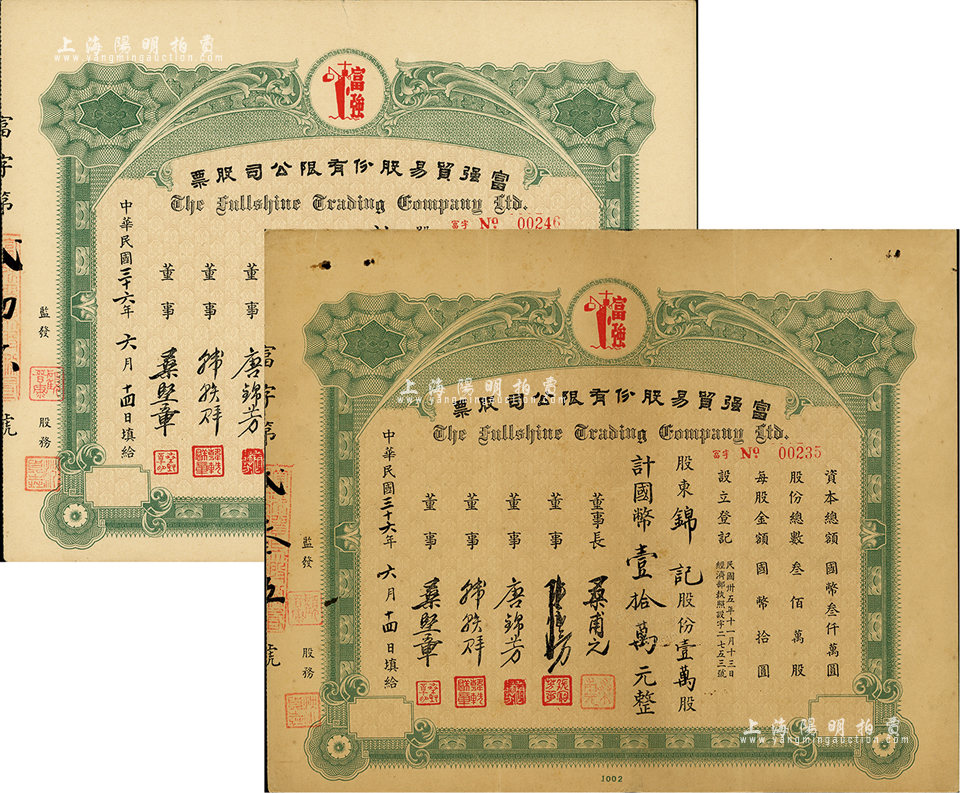 上海陽明拍賣
www.yangmingauction.com
富強
富强貿易股份有限公司股票
The Fullshine Trading Company Ltd.
富字 No 00246
董事 唐錦芳
董事
董事 桑堅章
中華民國三十六年 六月 十四日填給
富字第
號
監發
股務
富強
上海陽明拍賣
www.yangmingauction.com
富强貿易股份有限公司股票
The Fullshine Trading Company Ltd.
富字 No 00235
資本總額 國幣叁仟萬圓
股份總數 叁佰萬股
每股金額 國幣拾圓
設立登記 民國卅五年十一月十三日
經濟部執照設字二七五三號
股東錦記股份壹萬股
計國幣壹拾萬元整
董事長 桑甫之
董事
董事 唐錦芳
董事
董事 桑堅章
中華民國三十六年 六月 十四日填給
富字第
號
監發
股務
上海陽明拍賣
www.yangmingauction.com
1002